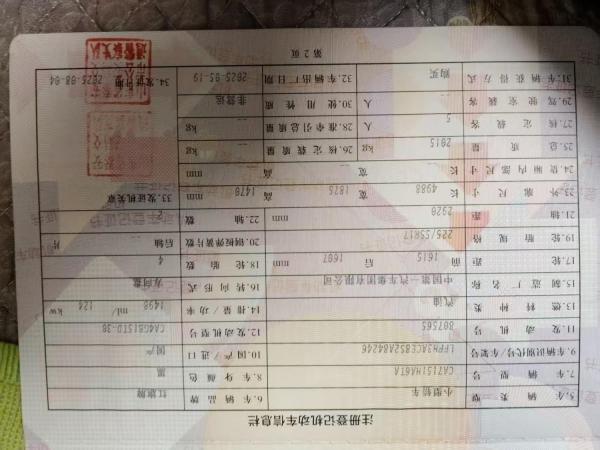 注册登记机动车信息栏
5.车辆类型 小型轿车 6.车辆品牌 红旗牌
7.车辆型号 CA7151HA6TA 8.车身颜色 黑
9.车辆识别代号/车架号 LFPH3ACE8S2A84246 10.国产/进口 国产
11.发动机号 807565 12.发动机型号 CA4GB15TD-38
13.燃料种类 汽油 14.排量/功率 1498 ml/ 124 kw
15.制造厂名称 中国第一汽车集团有限公司 16.转向形式 方向盘
17.轮距 前 1615 后 1607 mm 18.轮胎数 4
19.轮胎规格 225/55R17 20.钢板弹簧片数 后轴 片
21.轴距 2920 mm 22.轴数 2
23.外廓尺寸 长 4988 宽 1875 高 1470 mm 33.发证机关章
24.货厢内部尺寸 长 -- 宽 -- 高 -- mm
25.总质量 2015 kg 26.核定载质量 -- kg
27.核定载客 5 人 28.准牵引总质量 -- kg
29.驾驶室载客 -- 人 30.使用性质 非营运
31.车辆获得方式 购买 32.车辆出厂日期 2025-05-19 34.发证日期 2025-08-04
第2页